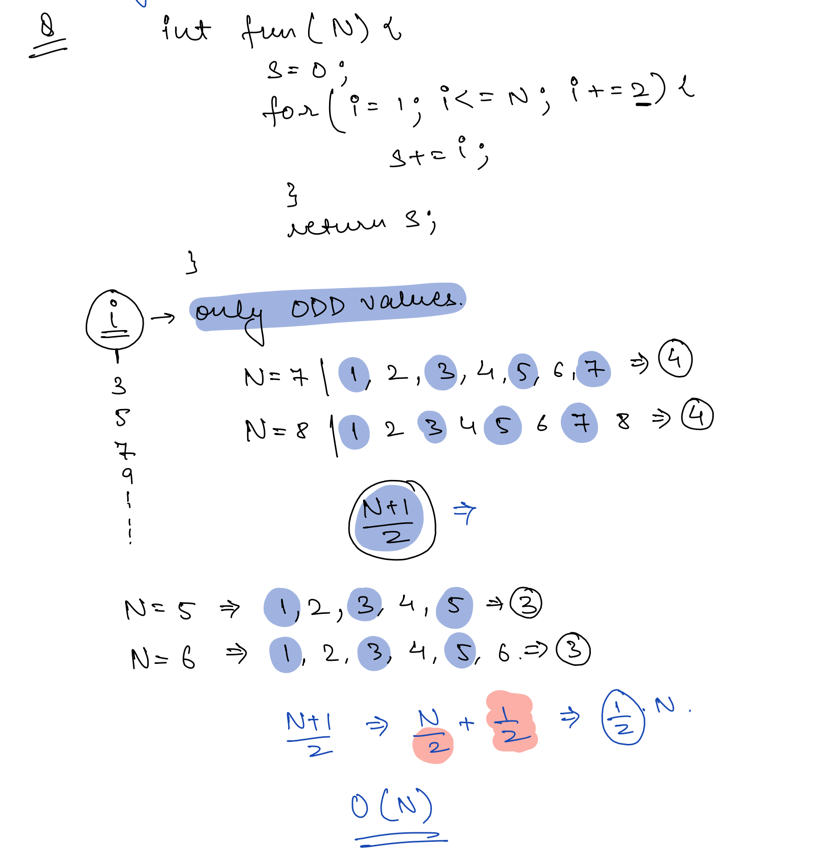 Q int fun(N){
s=0;
for(i=1; i<=N; i+=2){
s+=i;
}
return s;
}
i → only ODD values.
1
3
5
7
9
N=7 | 1, 2, 3, 4, 5, 6, 7 ⇒ 4
N=8 | 1 2 3 4 5 6 7 8 ⇒ 4
N+1/2 ⇒
N=5 ⇒ 1, 2, 3, 4, 5 ⇒ 3
N=6 ⇒ 1, 2, 3, 4, 5, 6. ⇒ 3
N+1/2 ⇒ N/2 + 1/2 ⇒ 1/2 · N.
O(N)